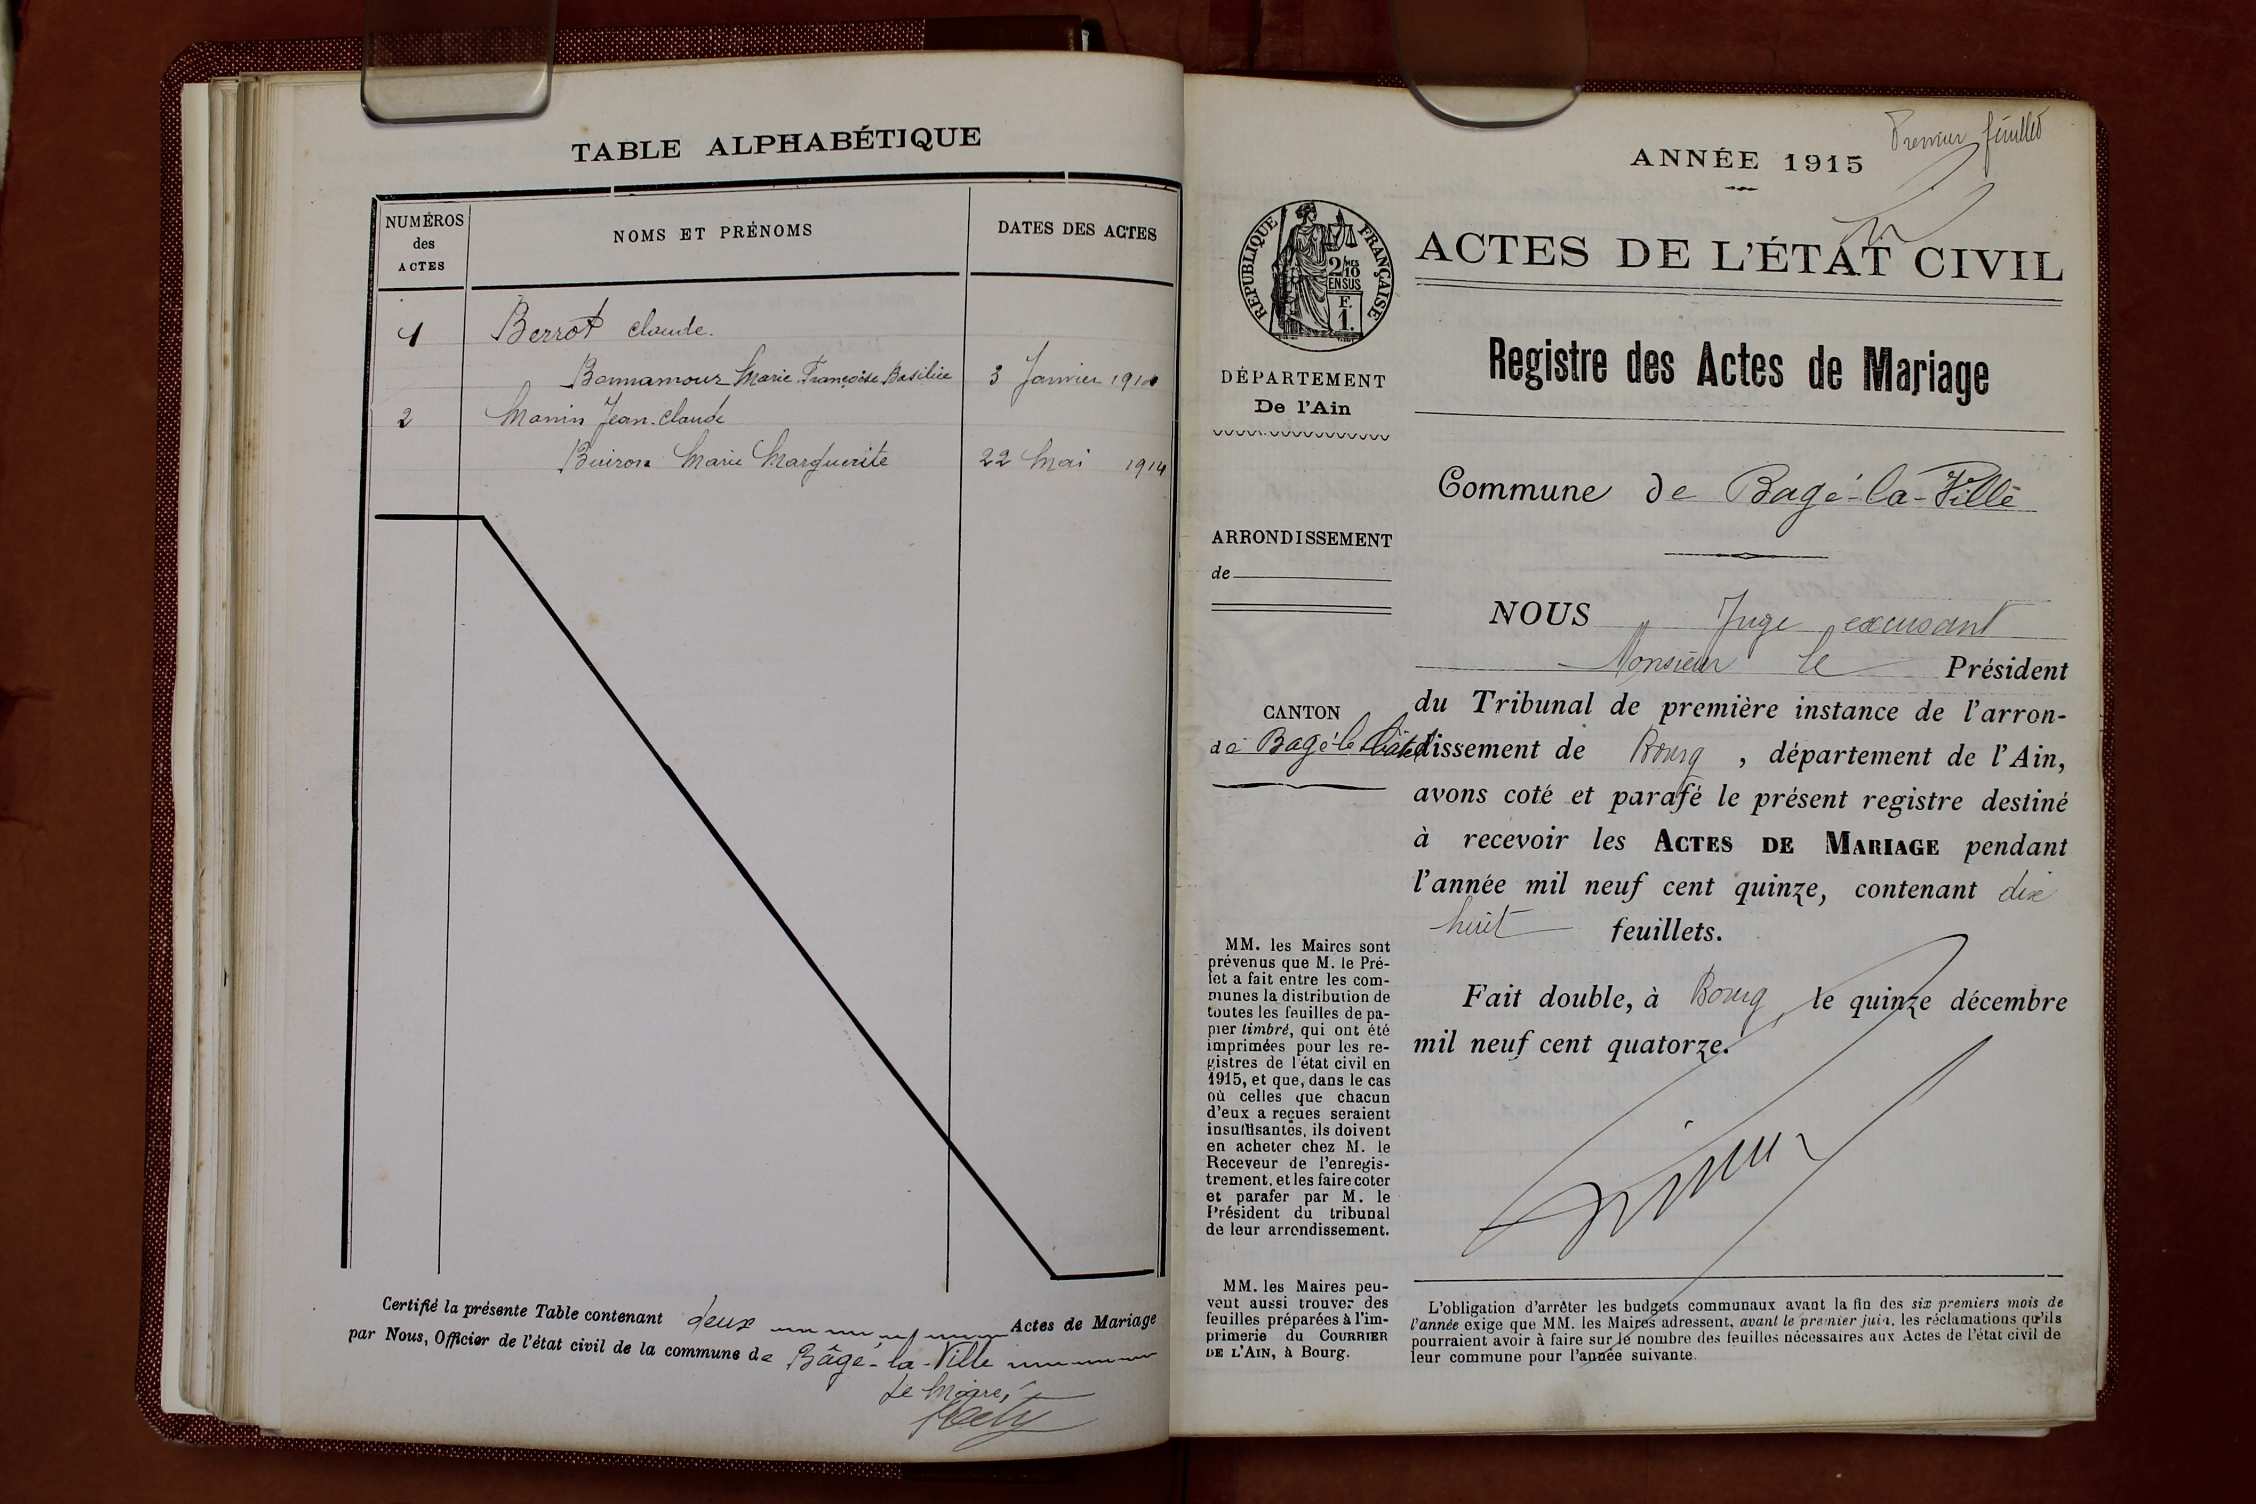 TABLE ALPHABÉTIQUE
NUMÉROS
des
ACTES
NOMS ET PRÉNOMS
DATES DES ACTES
1
Berrot Claude.
Bonnamour Marie Françoise Basilice
3 Janvier 191
2
Manin Jean-Claude
Buiron Marie Marguerite
22 Mai 1914
Certifié la présente Table contenant deux Actes de Mariage
par Nous, Officier de l'état civil de la commune de Bâgé-la-Ville
Le Maire,
Premier feuillet
ANNÉE 1915
RÉPUBLIQUE FRANÇAISE
2/10MES
EN SUS
F.
1.
ACTES DE L'ÉTAT CIVIL
Registre des Actes de Mariage
DÉPARTEMENT
De l'Ain
Commune de Bagé-la-Ville
ARRONDISSEMENT
de
CANTON
de Bagé-le-Châtel
NOUS Juge excusant
Monsieur le Président
du Tribunal de première instance de l'arron-
dissement de Bourg, département de l'Ain,
avons coté et parafé le présent registre destiné
à recevoir les ACTES DE MARIAGE pendant
l'année mil neuf cent quinze, contenant dix
huit feuillets.
Fait double, à Bourg, le quinze décembre
mil neuf cent quatorze.
MM. les Maires sont
prévenus que M. le Pré-
fet a fait entre les com-
munes la distribution de
toutes les feuilles de pa-
pier timbré, qui ont été
imprimées pour les re-
gistres de l'état civil en
1915, et que, dans le cas
où celles que chacun
d'eux a reçues seraient
insuffisantes, ils doivent
en acheter chez M. le
Receveur de l'enregis-
trement, et les faire coter
et parafer par M. le
Président du tribunal
de leur arrondissement.
MM. les Maires peu-
vent aussi trouver des
feuilles préparées à l'im-
primerie du COURRIER
DE L'AIN, à Bourg.
L'obligation d'arrêter les budgets communaux avant la fin des six premiers mois de
l'année exige que MM. les Maires adressent, avant le premier juin, les réclamations qu'ils
pourraient avoir à faire sur le nombre des feuilles nécessaires aux Actes de l'état civil de
leur commune pour l'année suivante.